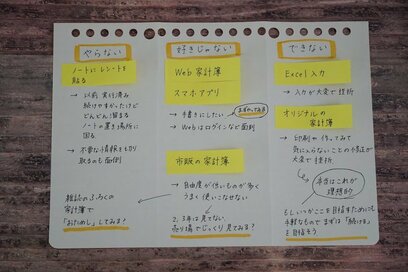 やらない
ノートにレシートを
貼る
→ 以前 実行済み
続けやすかったけど
どんどん溜まる
ノートの置き場所に
困る
→ 不要な情報を切り
取るのも面倒
雑誌のふろくの
家計簿で
「おためし」してみる!
好きじゃない
Web 家計簿
スマホアプリ
→ 手書きにしたい
→ Webはログインなど面倒
市販の家計簿
→ 自由度が低いものが多く
うまく使いこなせない
2、3年は見てない
売り場でじっくり見てみる?
できない
Excel 入力
→ 入力が大変で挫折
オリジナルの
家計簿
→ 印刷や作ってみて
気に入らないことの修正が
大変で挫折
本当はこれが
理想的
もしいつかここを目指すためにも
手軽なもので まずは「続ける」
を目指そう